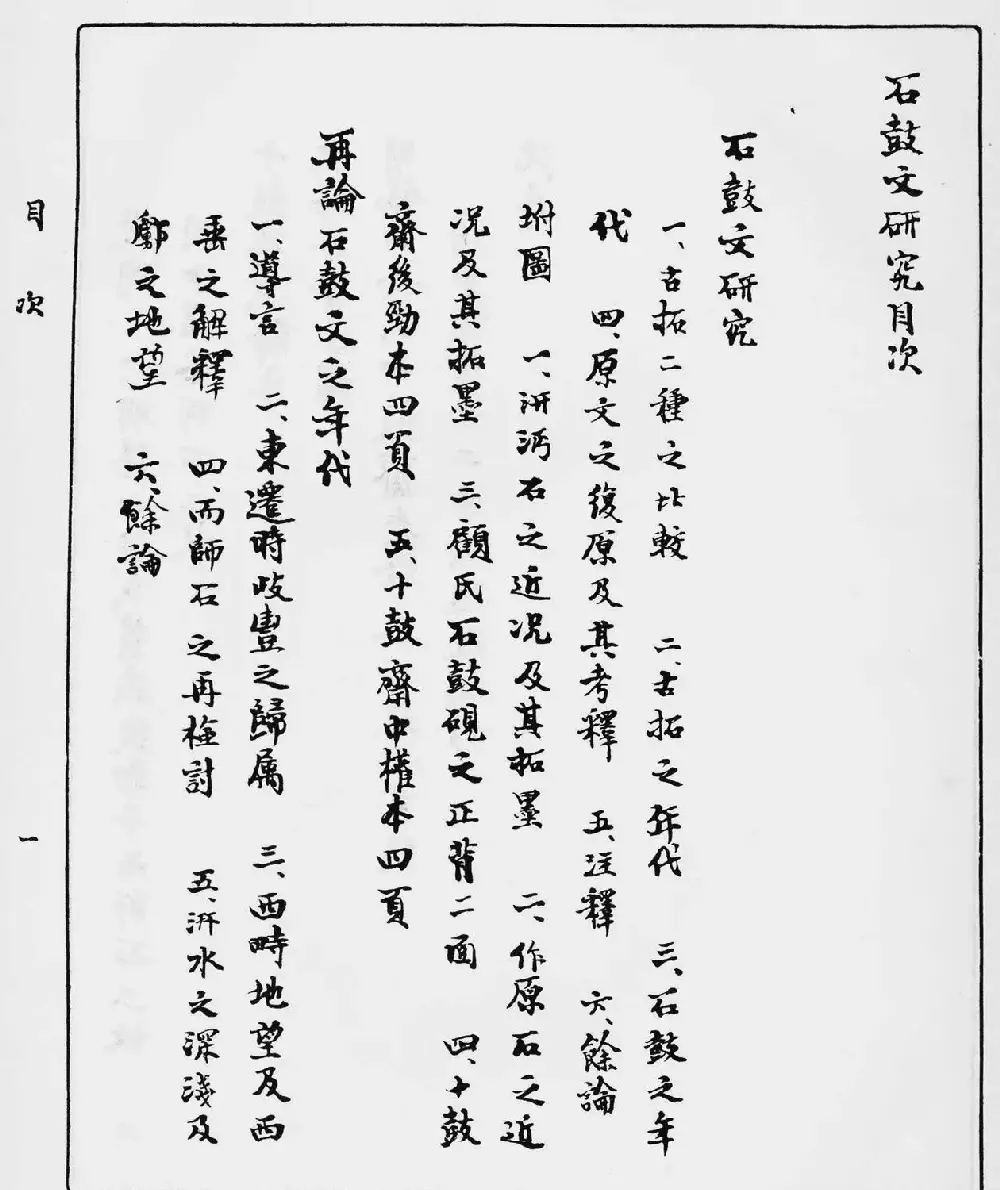 石鼓文研究目次
石鼓文研究
一、古拓二種之比較 二、古拓之年代 三、石鼓之年
代 四、原文之復原及其考釋 五、注釋 六、餘論
坿圖 一、汧沔石之近况及其拓墨 二、作原石之近
况及其拓墨 三、顧氏石鼓硯之正背二面 四、十鼓
齋後勁本四頁 五、十鼓齋中權本四頁
再論石鼓文之年代
一、導言 二、東遷時岐豐之歸屬 三、西畤地望及西
垂之解釋 四、而師石之再檢討 五、汧水之深淺及
鄜之地望 六、餘論
目次
一